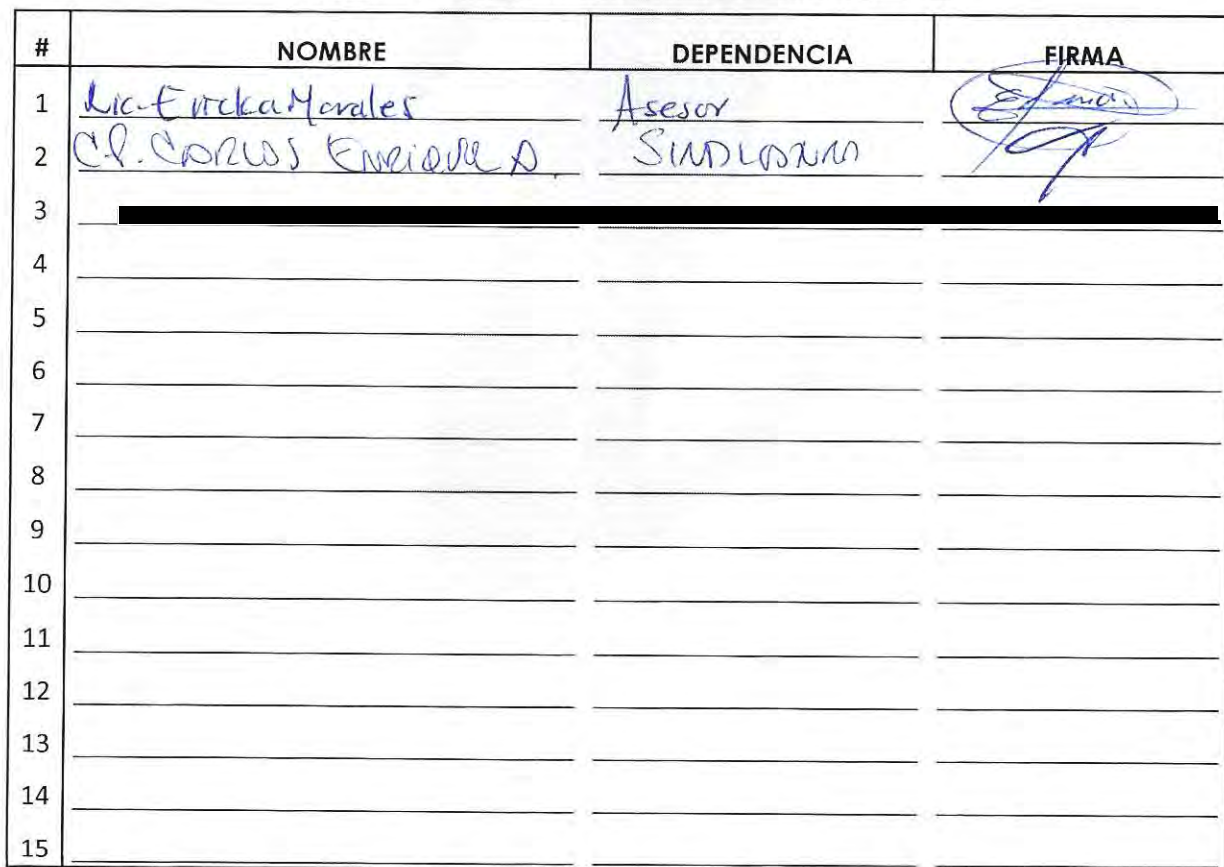 # NOMBRE DEPENDENCIA FIRMA
1 Lic. Ericka Morales Asesor
2 C.P. CARLOS ENRIQUE A. SINDICATURA
3
4
5
6
7
8
9
10
11
12
13
14
15